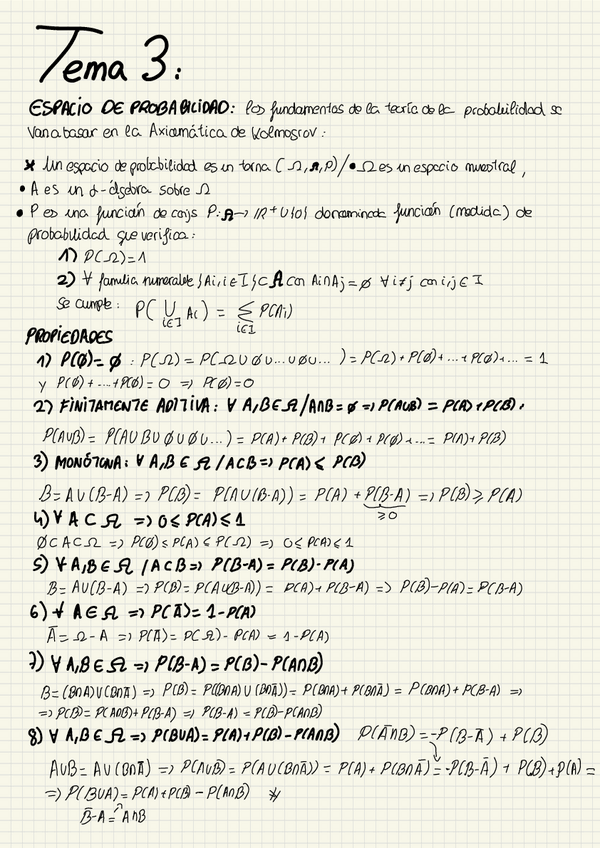 Tema 3:
ESPACIO DE PROBABILIDAD: los fundamentos de la teoría de la probabilidad se
van a basar en la Axiomática de Kolmogrov:
* Un espacio de probabilidad es un terna (Ω, A, P) / • Ω es un espacio muestral,
• A es un σ-álgebra sobre Ω
• P es una función de conjs P: A → IR⁺ ∪ {0} denominada función (medida) de
probabilidad que verifica:
1) P(Ω)=1
2) ∀ familia numerable {Ai, i∈I} ⊂ A con Ai∩Aj=∅ ∀i≠j con i,j ∈ I
se cumple: P(∪ i∈I Ai) = Σ i∈I P(Ai)
PROPIEDADES
1) P(∅)=∅ : P(Ω) = P(Ω∪∅∪...∪∅∪...) = P(Ω)+P(∅)+...+P(∅)+... = 1
y P(∅)+...+P(∅)=0 => P(∅)=0
2) FINITAMENTE ADITIVA: ∀ A,B∈Ω / A∩B=∅ => P(A∪B) = P(A)+P(B).
P(A∪B) = P(A∪B∪∅∪∅∪...) = P(A)+P(B)+P(∅)+P(∅)+... = P(A)+P(B)
3) MONÓTONA: ∀ A,B∈Ω / A⊂B => P(A) ≤ P(B)
B = A∪(B-A) => P(B) = P(A∪(B-A)) = P(A) + P(B-A) => P(B) ≥ P(A)
≥0
4) ∀ A⊂Ω => 0 ≤ P(A) ≤ 1
∅⊂A⊂Ω => P(∅) ≤ P(A) ≤ P(Ω) => 0 ≤ P(A) ≤ 1
5) ∀ A,B∈Ω / A⊂B => P(B-A) = P(B)-P(A)
B = A∪(B-A) => P(B) = P(A∪(B-A)) = P(A)+P(B-A) => P(B)-P(A) = P(B-A)
6) ∀ A∈Ω => P(Ā) = 1-P(A)
Ā = Ω-A => P(Ā) = P(Ω)-P(A) = 1-P(A)
7) ∀ A,B∈Ω => P(B-A) = P(B)-P(A∩B)
B = (B∩A)∪(B∩Ā) => P(B) = P((B∩A)∪(B∩Ā)) = P(B∩A)+P(B∩Ā) = P(B∩A)+P(B-A) =>
=> P(B) = P(A∩B)+P(B-A) => P(B-A) = P(B)-P(A∩B)
8) ∀ A,B∈Ω => P(B∪A) = P(A)+P(B)-P(A∩B) P(Ā∩B) = -P(B-Ā) + P(B)
A∪B = A∪(B∩Ā) => P(A∪B) = P(A∪(B∩Ā)) = P(A)+P(B∩Ā) = -P(B-Ā)+P(B)+P(A) =
=> P(B∪A) = P(A)+P(B)-P(A∩B) *
B̄-A = A∩B